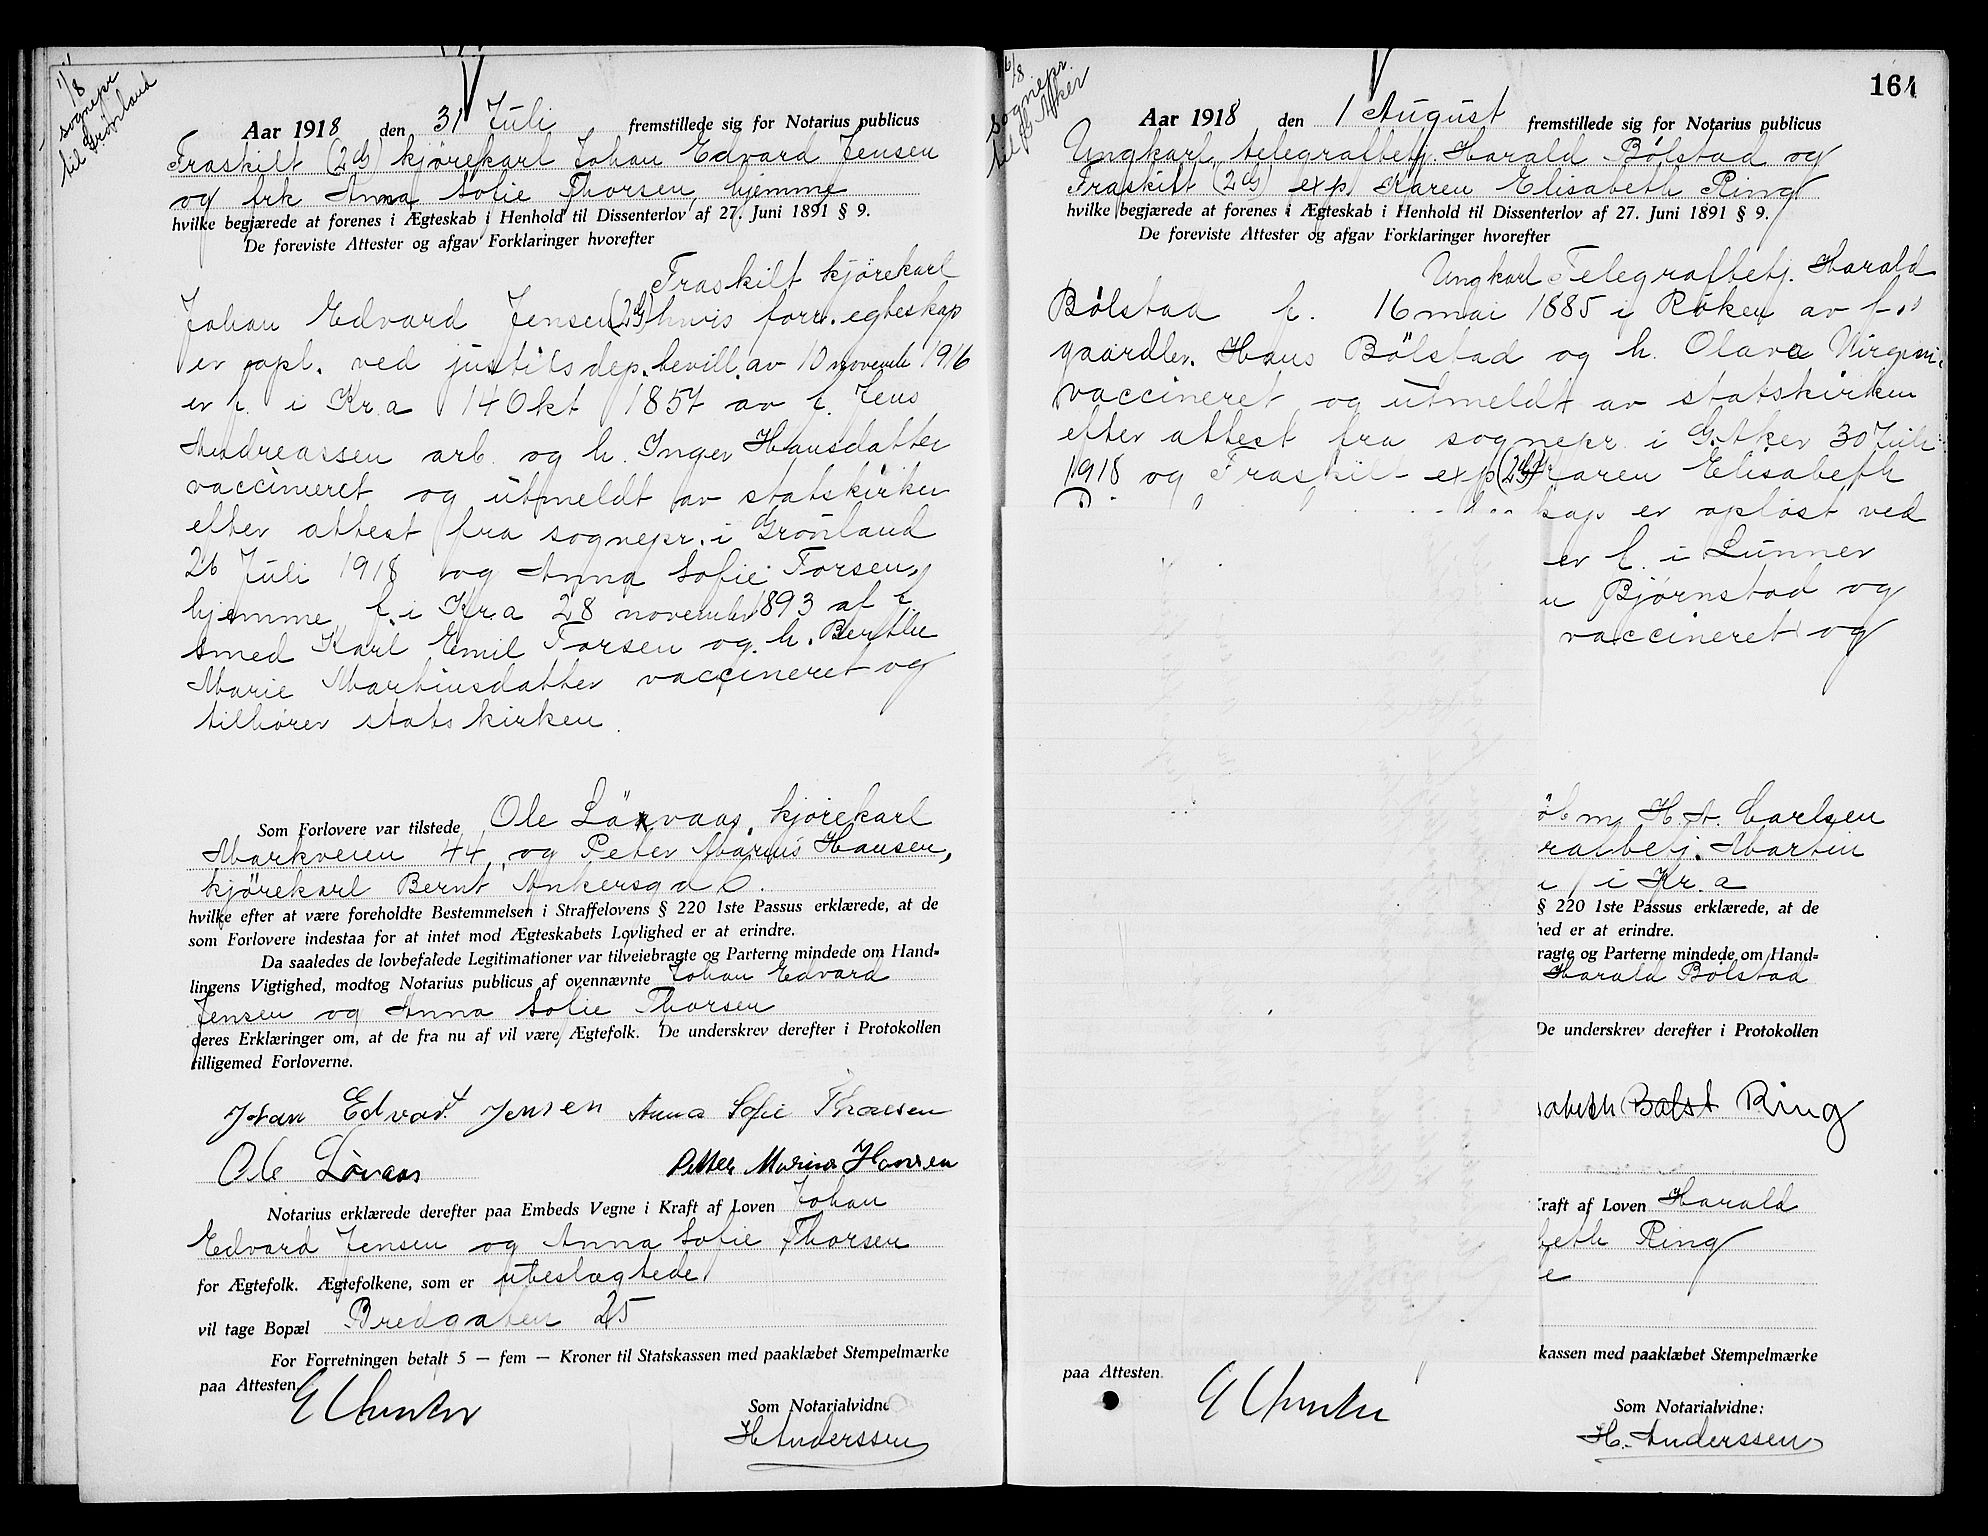 1/8
sognepr
til Grønland
Aar 1918 den 31 Juli fremstillede sig for Notarius publicus
Fraskilt (2dG) kjørekarl Johan Edvard Jensen
og frk Anna Sofie Thorsen, hjemme
hvilke begjærede at forenes i Ægteskab i Henhold til Dissenterlov af 27. Juni 1891 § 9.
De foreviste Attester og afgav Forklaringer hvorefter
Fraskilt kjørekarl
Johan Edvard Jensen (2dG) hvis forr. egteskap
er opl. ved justitsdep. bevill. av 10 novembr 1916
er f. i Kr.a 14 Okt 1857 av f. Jens
Andreassen arb. og h. Inger Hansdatter
vaccineret og utmeldt av statskirken
efter attest fra sognepr. i Grönland
26 Juli 1918 og Anna Sofie Torsen,
hjemme f. i Kr.a 28 november 1893 af f.
smed Karl Emil Torsen og h. Berthe
Marie Martinsdatter vaccineret og
tilhører statskirken.
Som Forlovere var tilstede Ole Lövaas, kjørekarl
Markveien 44, og Peter Marius Hansen,
kjørekarl Bernt Ankersga 6.
hvilke efter at være foreholdte Bestemmelsen i Straffelovens § 220 1ste Passus erklærede, at de
som Forlovere indestaa for at intet mod Ægteskabets Lovlighed er at erindre.
Da saaledes de lovbefalede Legitimationer var tilveiebragte og Parterne mindede om Hand-
lingens Vigtighed, modtog Notarius publicus af ovennævnte Johan Edvard
Jensen og Anna Sofie Thorsen
deres Erklæringer om, at de fra nu af vil være Ægtefolk. De underskrev derefter i Protokollen
tilligemed Forloverne.
Johan Edvart Jensen Anna Sofie Thorsen
Ole Lövaas Petter Marius Hansen
Notarius erklærede derefter paa Embeds Vegne i Kraft af Loven Johan
Edvard Jensen og Anna Sofie Thorsen
for Ægtefolk. Ægtefolkene, som er ubeslægtede
vil tage Bopæl Bredgaten 25
For Forretningen betalt 5 — fem — Kroner til Statskassen med paaklæbet Stempelmærke
paa Attesten.
Som Notarialvidne
H Anderssen
164
6/8
sognepr.
til Ø. Aker
Aar 1918 den 1 August fremstillede sig for Notarius publicus
Ungkarl, telegrafbetj. Harald Bølstad og
Fraskilt (2dG) exp Karen Elisabeth Ring
hvilke begjærede at forenes i Ægteskab i Henhold til Dissenterlov af 27. Juni 1891 § 9.
De foreviste Attester og afgav Forklaringer hvorefter
Ungkarl Telegrafbetj. Harald
Bølstad f. 16 mai 1885 i Røken av f.
gaardbr. Hans Bölstad og h. Olava
vaccineret og utmeldt av statskirken
efter attest fra sognepr. i Ø. Aker 30 Juli
1918 og Fraskilt exp (2dG) Karen Elisabeth
kap er opløst ved
er f. i Lunner
Bjørnstad og
vaccineret og
H. A. Carlsen
rafbetj. Martin
i Kr. a
§ 220 1ste Passus erklærede, at de
hed er at erindre.
ragte og Parterne mindede om Hand-
Harald Bølstad
De underskrev derefter i Protokollen
sabeth Bølst Ring
Kraft af Loven Harald
beth Ring
e
kassen med paaklæbet Stempelmærke
paa Attesten.
Som Notarialvidne:
H. Anderssen